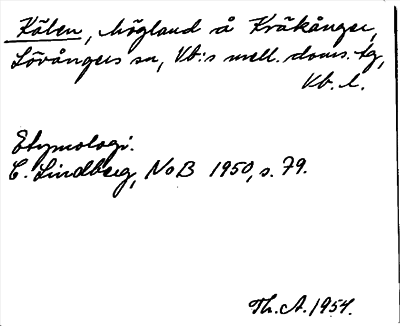 Kälen, högland å Kräkånger,
Lövångers sn, Vb:s mell. doms. tg,
Vb. l.
Etymologi.
C. Lindberg, NoB 1950, s. 79.
Th. A. 1954.